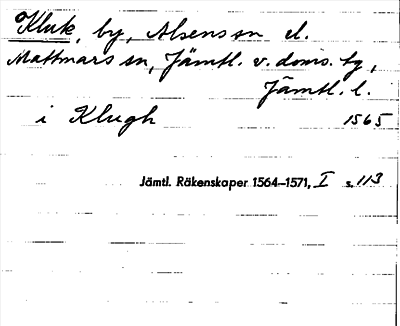 Kluk, by, Alsens sn el.
Mattmars sn, Jämtl. v. doms. tg,
Jämtl. l.
i Klugh 1565
Jämtl. Räkenskaper 1564–1571, I s. 113